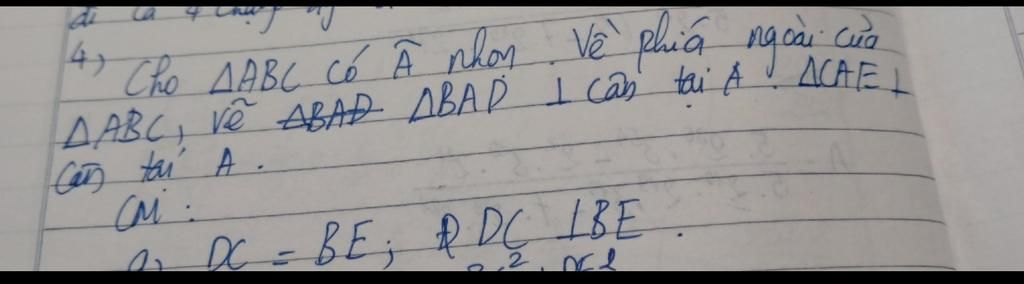 4) Cho ΔABC có Â nhọn. Vẽ phiá ngoài của
ΔABC, vẽ ΔBAD ΔBAD ⊥ cân tại A. ΔCAE ⊥
cân tại A.
CM:
a, DC = BE; DC ⊥ BE.